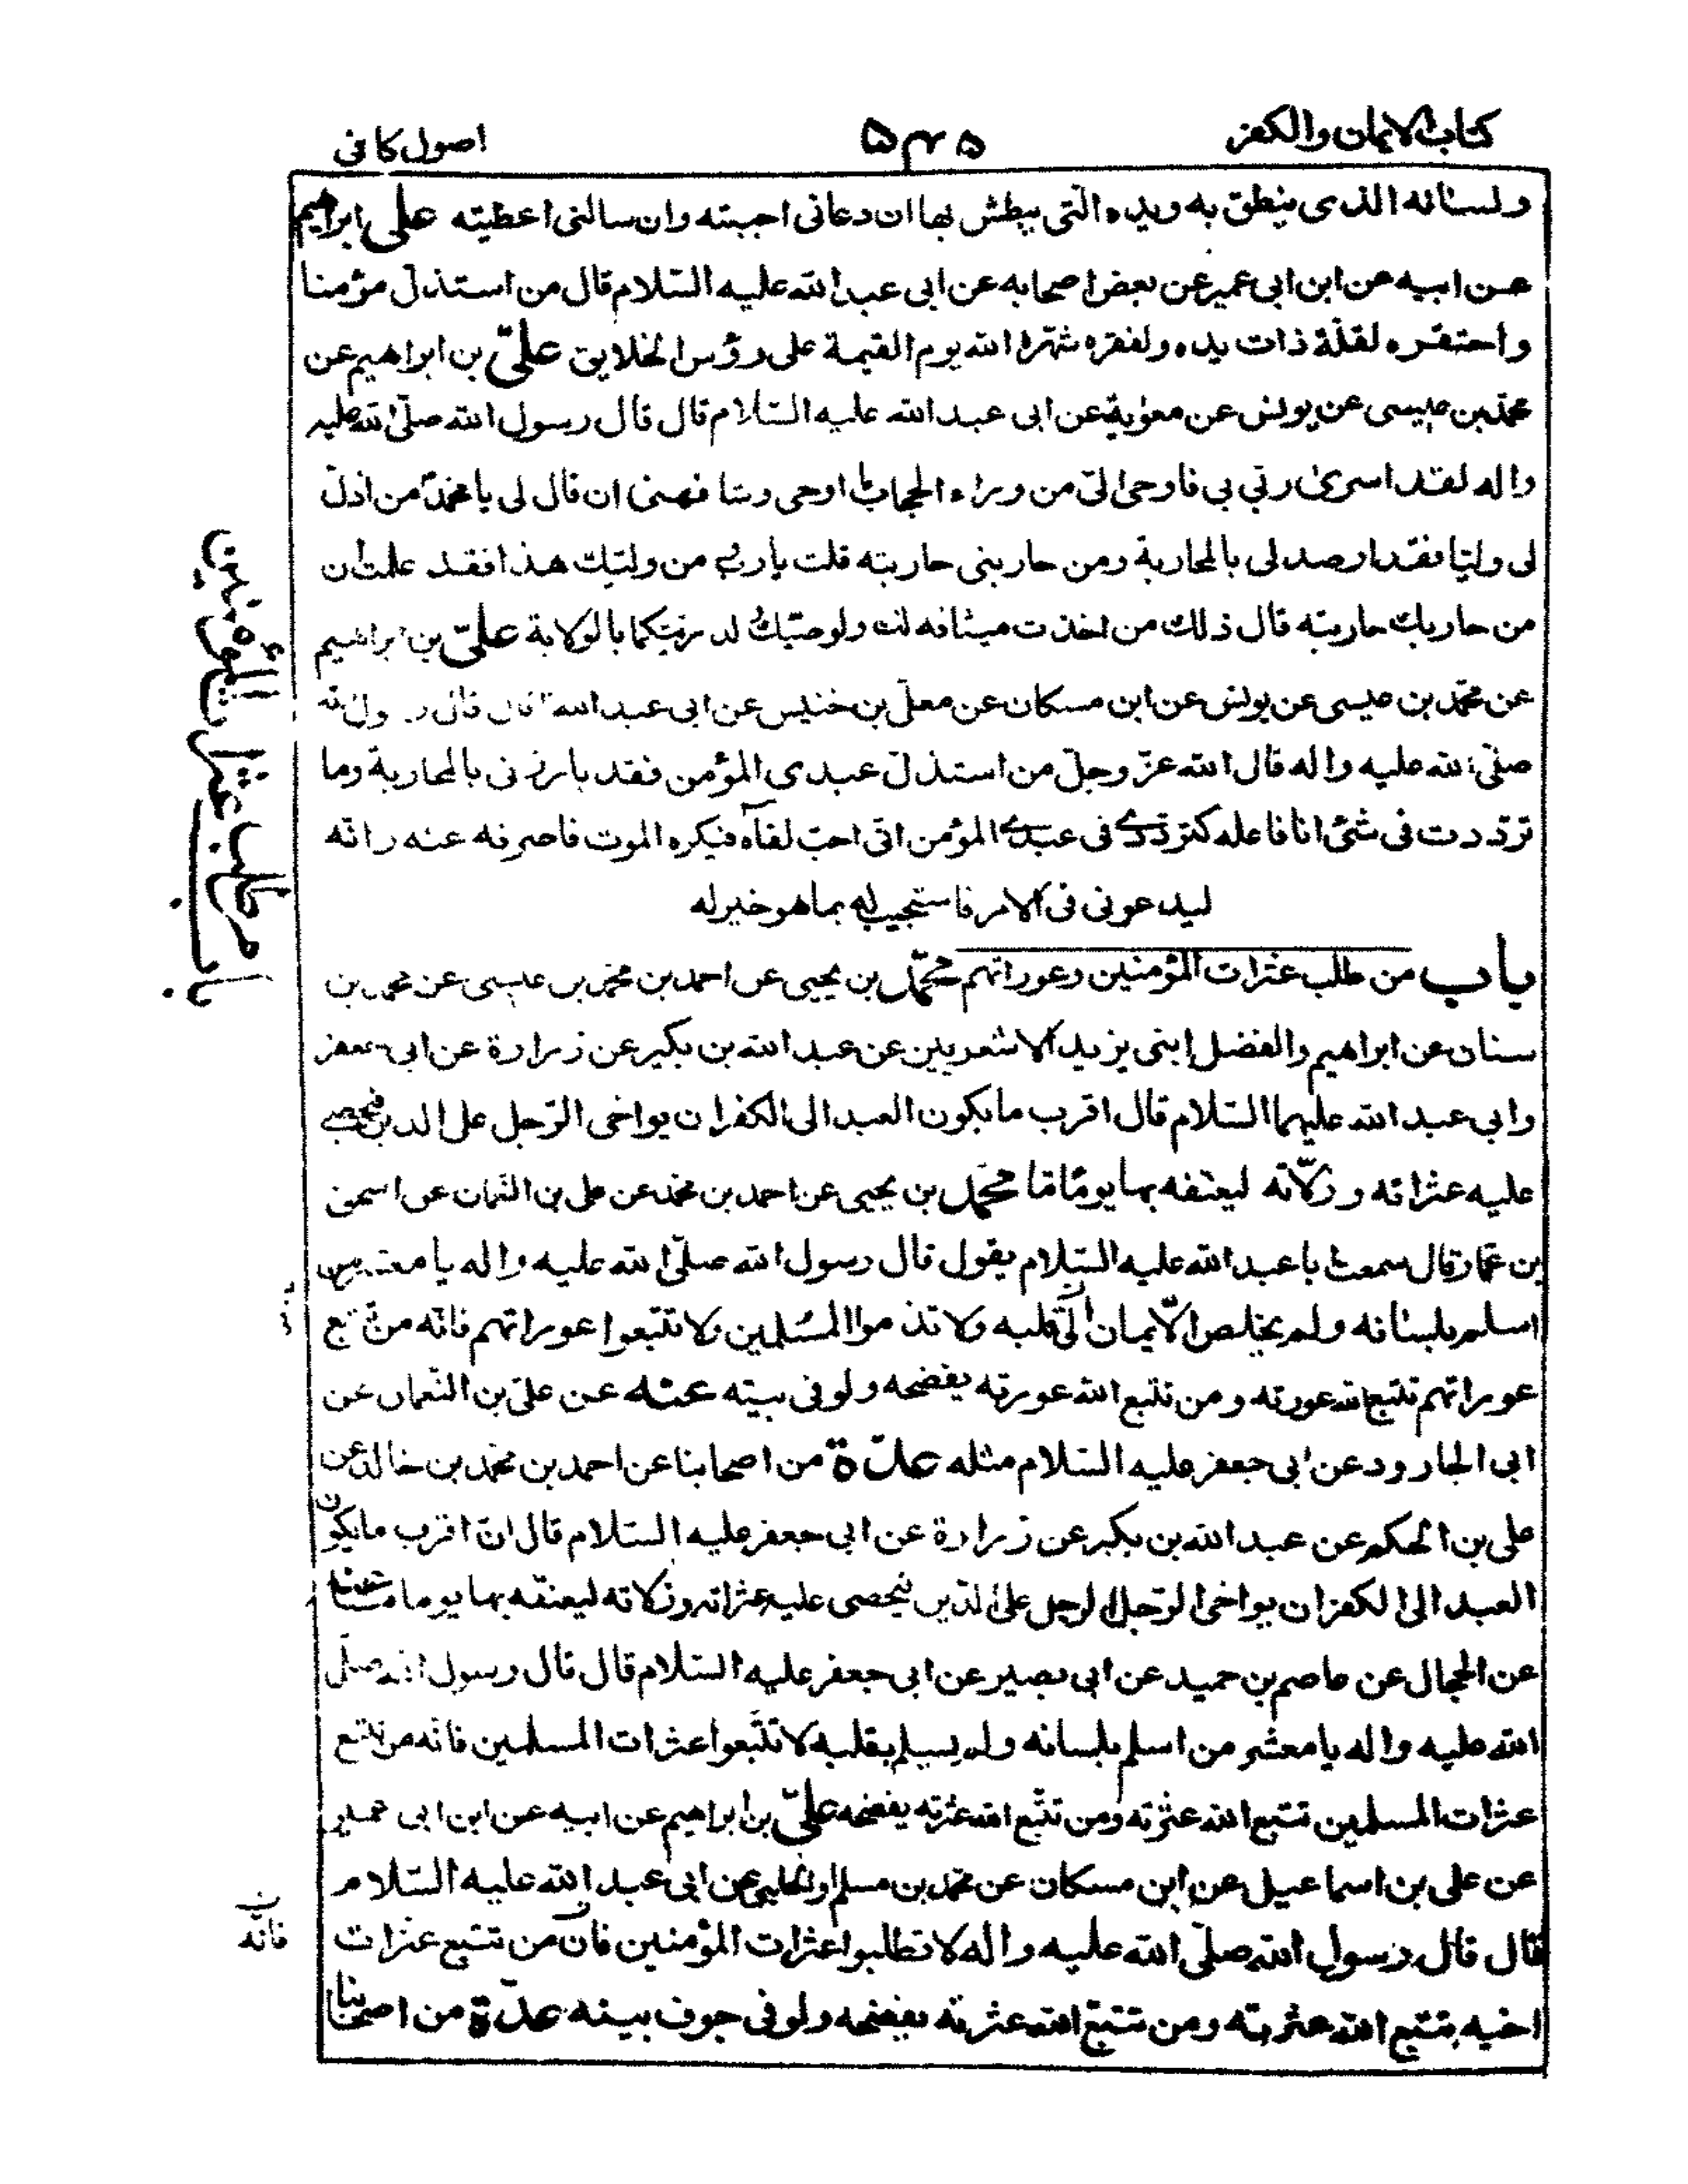 كتاب الايمان والكفر
۵۴۵
اصول كافى
ولسانه الذى ينطق به ويده التى يبطش بها ان دعانى اجبته وان سالنى اعطيته على ابراهيم
عن ابيه عن ابن ابى عمير عن بعض اصحابه عن ابى عبد الله عليه السّلام قال من استذلّ مؤمنا
واحتقره لقلّة ذات يده ولفقره شهّره الله يوم القيمة على رؤس الخلايق علىّ بن ابراهيم عن
محمّد بن عيسى عن يونس عن معوية عن ابى عبد الله عليه السّلام قال قال رسول الله صلّى الله عليه
واله لقد اسرى ربّي بي فاوحى الىّ من وراء الحجاب ما اوحى وشا فهنى ان قال لى يا محمّد من اذلّ
لى وليّا فقد ارصد لى بالمحاربة ومن حاربنى حاربته قلت يا ربّ من وليّك هذا فقد علمت ان
من حاربك حاربته قال ذلك من اخذت ميثاقه لك ولوصيّك لذريّتكما بالولاية علىّ بن ابراهيم
عن محمّد بن عيسى عن يونس عن ابن مسكان عن معلّى بن خنيس عن ابى عبد الله قال قال رسول الله
صلّى الله عليه واله قال الله عزّ وجلّ من استذلّ عبدى المؤمن فقد بارزنى بالمحاربة وما
تردّدت فى شئ انا فاعله كتردّدى فى عبدى المؤمن انّى احبّ لقآءه فيكره الموت فاصرفه عنه وانّه
ليدعونى فى الامر فاستجيب له بما هو خير له
باب من طلب عثرات المؤمنين وعوراتهم محمّد بن يحيى عن احمد بن محمّد بن عيسى عن محمد بن
سنان عن ابراهيم والفضل ابنى يزيد الاشعريين عن عبد الله بن بكير عن زرارة عن ابى جعفر
وابي عبد الله عليهما السّلام قال اقرب ما يكون العبد الى الكفر ان يواخى الرّجل على الدين فيحصى
عليه عثراته وزلّاته ليعنّفه بها يومًا مّا محمّد بن يحيى عن احمد بن محمّد عن على بن النّعمان عن اسحق
بن عمّار قال سمعت ابا عبد الله عليه السّلام يقول قال رسول الله صلّى الله عليه واله يا معشر من
اسلم بلسانه ولم يخلص الايمان الى قلبه لا تذموا المسلمين ولا تتّبعوا عوراتهم فانّه من تتبع
عوراتهم تتبع الله عورته ومن تتبع الله عورته يفضحه ولو فى بيته عنه عن علىّ بن النّعمان عن
ابى الجارود عن ابى جعفر عليه السّلام مثله عدّة من اصحابنا عن احمد بن محمّد بن خالد عن
على بن الحكم عن عبد الله بن بكير عن زرارة عن ابى جعفر عليه السّلام قال انّ اقرب ما يكون
العبد الى الكفر ان يواخى الرّجل الرجل على الدّين فيحصى عليه عثراته وزلاته ليعنّفه بها يوما ما عنه
عن الحجال عن عاصم بن حميد عن ابى بصير عن ابى جعفر عليه السّلام قال قال رسول الله صلّى
الله عليه واله يا معشر من اسلم بلسانه ولم يسلم بقلبه لا تتّبعوا عثرات المسلمين فانّه من تتبع
عثرات المسلمين تتبع الله عثرته ومن تتّبع الله عثرته يفضحه علىّ بن ابراهيم عن ابيه عن ابن ابى عمير
عن على بن اسماعيل عن ابن مسكان عن محمّد بن مسلم او الحلبى عن ابى عبد الله عليه السّلام
قال قال رسول الله صلّى الله عليه واله لا تطلبوا عثرات المؤمنين فانّ من تتبع عثرات
اخيه يتتبع الله عثرته ومن تتبّع الله عثرته يفضحه ولو فى جوف بيته عدّة من اصحابنا
باب من طلب عثرات المؤمنين
فانّه